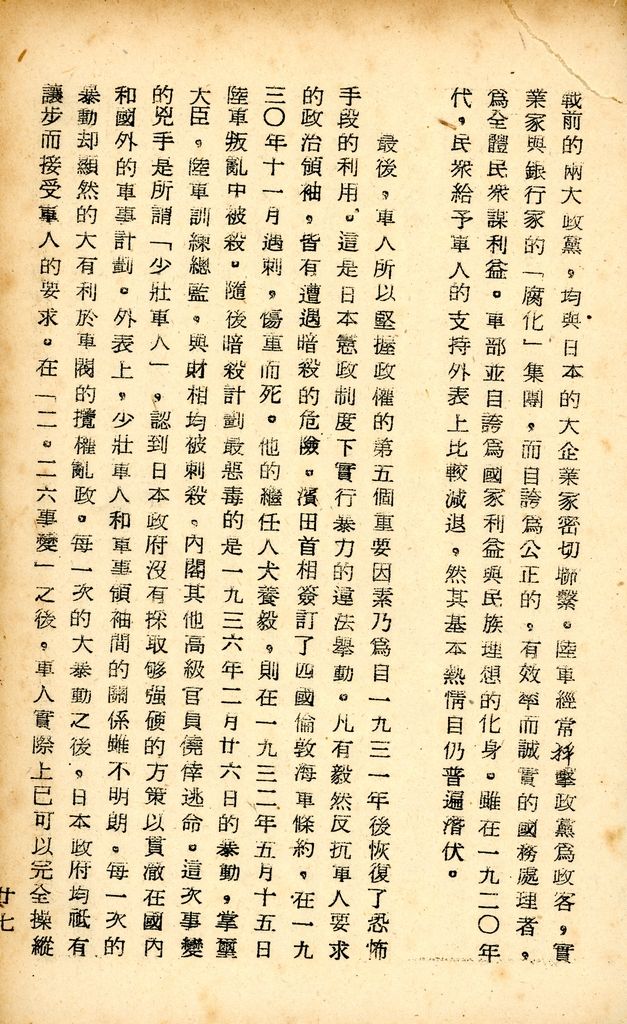 戰前的兩大政黨，均與日本的大企業家密切聯繫。陸軍經常抨擊政黨為政客，實
業家與銀行家的「腐化」集團，而自誇為公正的，有效率而誠實的國務處理者，
為全體民衆謀利益。軍部並自誇為國家利益與民族理想的化身。雖在一九二〇年
代，民衆給予軍人的支持外表上比較減退，然其基本熱情自仍普遍潛伏。
最後，軍人所以堅握政權的第五個重要因素乃為自一九三一年後恢復了恐怖
手段的利用。這是日本憲政制度下實行暴力的違法舉動。凡有毅然反抗軍人要求
的政治領袖，皆有遭遇暗殺的危險。濱田首相簽訂了四國倫敦海軍條約，在一九
三〇年十一月遇刺，傷重而死。他的繼任人犬養毅，則在一九三二年五月十五日
陸軍叛亂中被殺。隨後暗殺計劃最惡毒的是一九三六年二月廿六日的暴動，掌璽
大臣，陸軍訓練總監，與財相均被刺殺，內閣其他高級官員僥倖逃命。這次事變
的兇手是所謂「少壯軍人」，認到日本政府沒有採取够强硬的方策以貫澈在國內
和國外的軍事計劃。外表上，少壯軍人和軍事領袖間的關係雖不明朗。每一次的
暴動却顯然的大有利於軍閥的攬權亂政。每一次的大暴動之後，日本政府均祇有
讓步而接受軍人的要求。在「二。二六事變」之後，軍人實際上已可以完全操縱
廿七